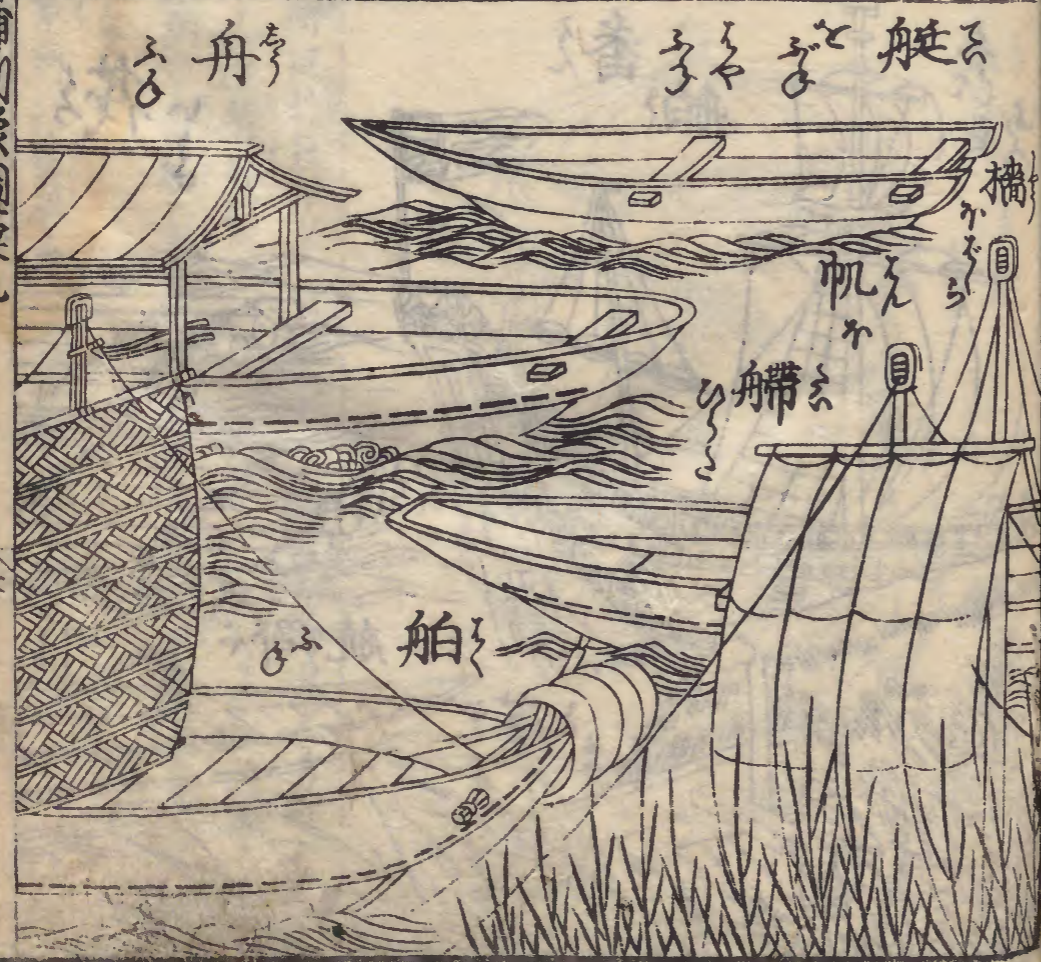 艇 てい
をぶね
はやふね
檣
ほばしら
帆 はん
ほ
艜 たい
ひらた
舟 しう
ふね
舶 はく
ふね